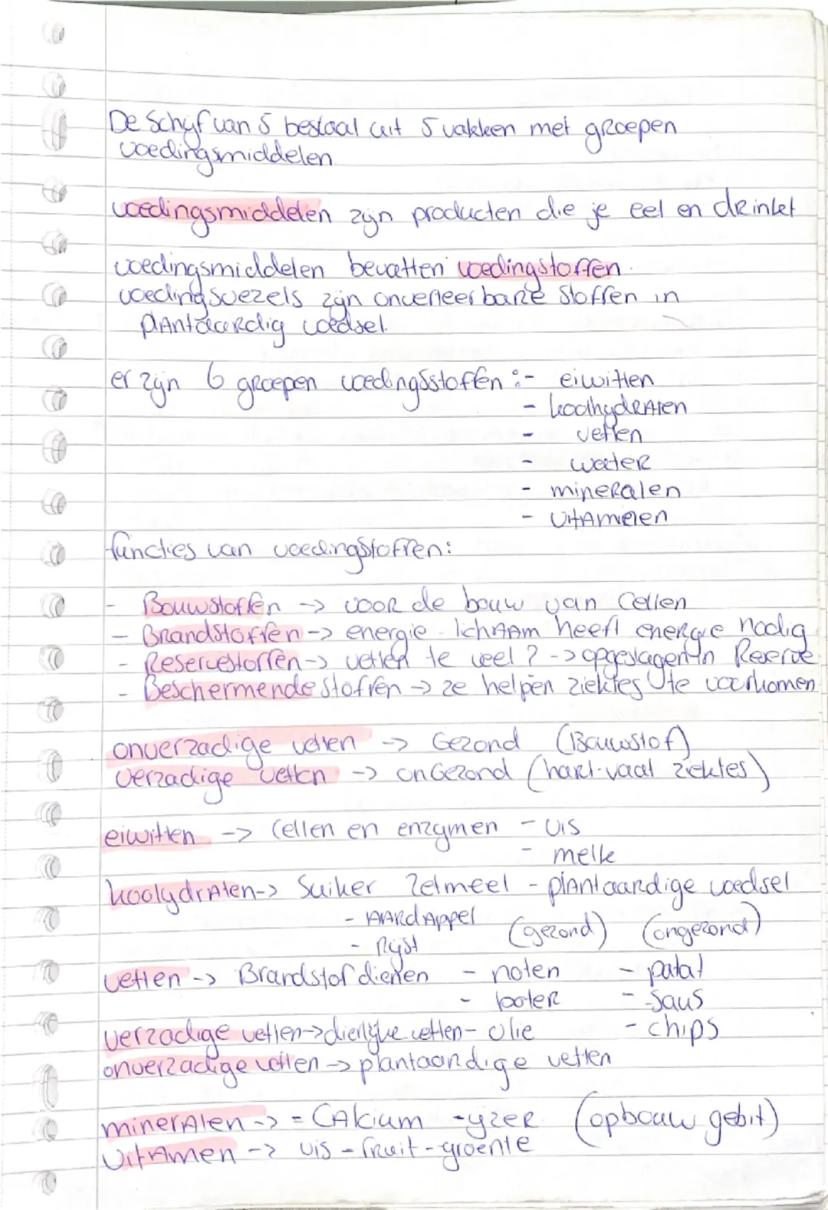 De Schijf van 5 bestaat uit 5 vakken met groepen
voedingsmiddelen
voedingsmiddelen zijn producten die je eet en drinkt
voedingsmiddelen bevatten voedingstoffen.
voedingsvezels zijn onverteerbare stoffen in
plantaardig voedsel.
er zijn 6 groepen voedingsstoffen :- eiwitten
- koolhydraten
- vetten
- water
- mineralen
- vitamenen
functies van voedingstoffen:
- Bouwstoffen -> voor de bouw van cellen
- Brandstoffen -> energie. lchaam heeft energie nodig
- Reservestoffen -> vetten te veel? -> opgeslagen in Reserve
- Beschermende stoffen -> ze helpen ziektes te voorkomen
onverzadige vetten -> Gezond (Bouwstof)
verzadige vetten -> onGezond (hart-vaat ziektes)
eiwitten -> Cellen en enzymen - vis
- melk
koolydraten -> Suiker Zetmeel - plantaardige voedsel
- AARDAppel (gezond) (ongezond)
- Rijst
vetten -> Brandstof dienen - noten - patat
- boter - saus
verzadige vetten -> dierlijke vetten - olie - chips
onverzadige vetten -> plantaardige vetten
mineralen -> = CAlcium - yzer (opbouw gebit)
vitamen -> vis - fruit - groente